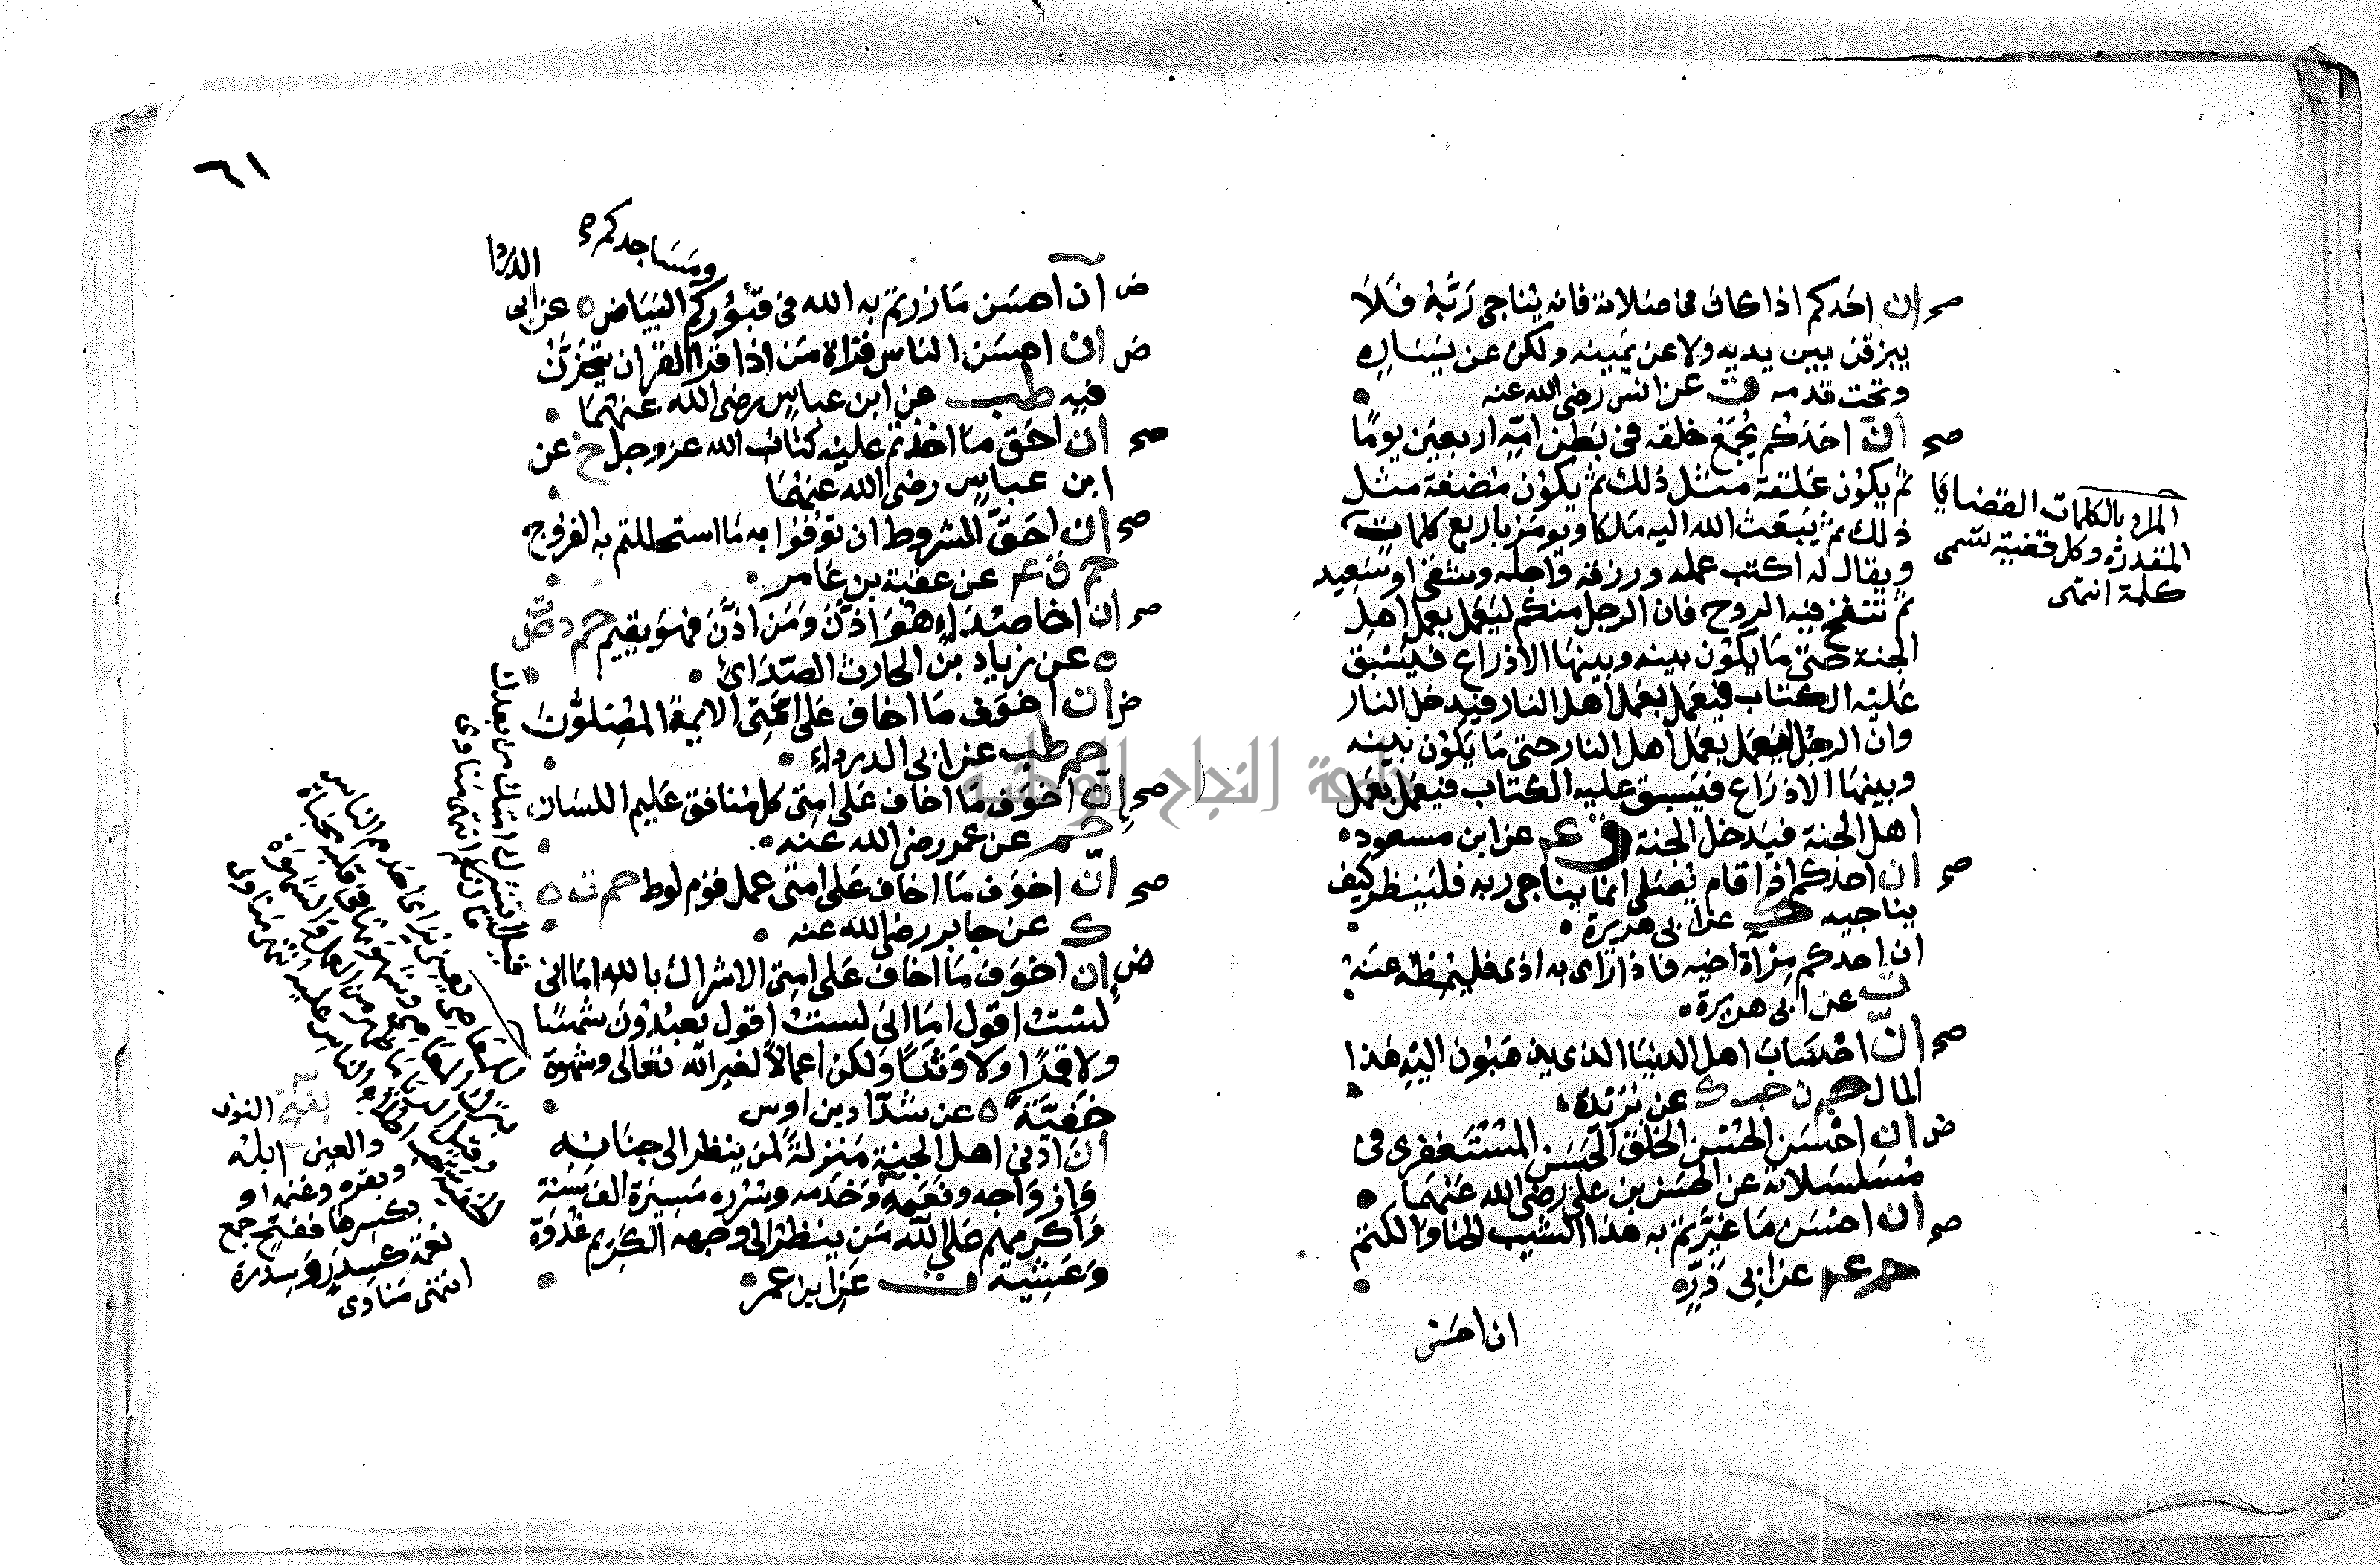 صح ان احدكم اذا كان في صلاته فانه يناجي ربه فلا
يبزقن بين يديه ولا عن يمينه ولكن عن يساره
وتحت قدمه ق عن انس رضى الله عنه
صح ان احدكم يجمع خلقه في بطن امه اربعين يوما
ثم يكون علقة مثل ذلك ثم يكون مضغة مثل
ذلك ثم يبعث الله اليه ملكا ويومر باربع كلمات
ويقال له اكتب عمله ورزقه واجله وشقي او سعيد
ثم ننفخ فيه الروح فان الرجل منكم ليعمل بعمل اهل
الجنة حتى ما يكون بينه وبينها الا ذراع فيسبق
عليه الكتاب فيعمل بعمل اهل النار فيدخل النار
وان الرجل ليعمل بعمل اهل النار حتى ما يكون بينه
وبينها الا ذراع فيسبق عليه الكتاب فيعمل بعمل
اهل الجنة فيدخل الجنة ق عـ عن ابن مسعود
صح ان احدكم اذا قام يصلى انما يناجي ربه فلينظر كيف
يناجيه ك عن ابي هريرة
ان احدكم مرآة اخيه فاذا راى به اذى فليمطه عنه
ت عن ابي هريرة
صح ان احساب اهل الدنيا الذي يذهبون اليه هذا
المال حم ن حب ك عن بريدة
ض ان احسن الحسن الخلق الحسن المستغفرى في
مسلسلاته عن الحسن بن على رضى الله عنهما
صح ان احسن ما غيرتم به هذا الشيب الحنا والكتم
حم عـ عن ابي ذر
ان احسن
المراد بالكلمات القضايا
المقدرة وكل قضية تسمى
كلمة انتهى
٦١
ومساجدكم
ض ان احسن ما زرتم به الله في قبوركم البياض ه عن ابى
الدردا
ض ان احسن الناس قراة من اذا قرا القران يتحزن
فيه طب عن ابن عباس رضى الله عنهما
صح ان احق ما اخذتم عليه كتاب الله عز وجل خ عن
ابن عباس رضى الله عنهما
صح ان احق الشروط ان توفوا به ما استحللتم به الفروج
حم ق عـ عن عقبة بن عامر
صح ان اخا صداء هو اذن ومن اذن فهو يقيم حم د ت
ه عن زياد بن الحارث الصدائ
ض ان اخوف ما اخاف على امتى الايمة المضلون
حم طب عن ابى الدرداء
صح ان اخوف ما اخاف على امتى كل منافق عليم اللسان
حم عن عمر رضى الله عنه
صح ان اخوف ما اخاف على امتى عمل قوم لوط حم ت ه
ك عن جابر رضى الله عنه
ض ان اخوف ما اخاف على امتى الاشراك بالله اما انى
لست اقول اما انى لست اقول يعبدون شمسا
ولا قمرا ولا وثنا ولكن اعمالا لغير الله تعالى وشهوة
خفية ه عن شداد بن اوس
ان ادنى اهل الجنة منزلة لمن ينظر الى جنانه
وازواجه ونعمه وخدمه وسرره مسيرة الف سنة
واكرمهم على الله من ينظر الى وجهه الكريم غدوة
وعشية ت عن ابن عمر
بفتح النون
والعين ابله
وبقره وغنمه او
بكسرها ففتح جمع
نعمة كسدر وسدرة
انتهى مناوى
جامعة النجاح الوطنية